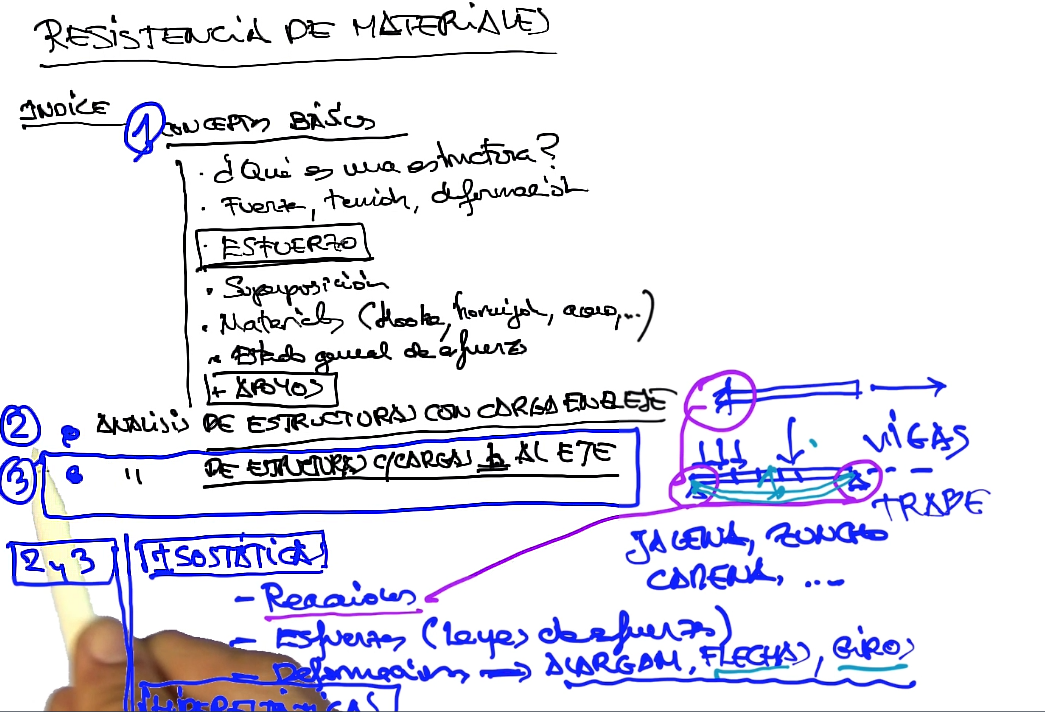 RESISTENCIA DE MATERIALES
INDICE
1 CONCEPTOS BÁSICOS
· ¿Qué es una estructura?
· Fuerza, tensión, deformación
· ESFUERZO
· Superposición
· Materiales (Hooke, hormigón, acero,...)
· Estado general de esfuerzo
+ APOYOS
2 • ANALISIS DE ESTRUCTURAS CON CARGA EN EL EJE
3 • " DE ESTRUCTURAS C/CARGAS ⊥ AL EJE
VIGAS
TRABE
JACENA, ZUNCHO
CADENA, ...
2 y 3
ISOSTÁTICA
- Reacciones
- Esfuerzos (Leyes de esfuerzo)
- Deformaciones → ALARGAM, FLECHAS, GIROS
HIPERESTÁTICAS